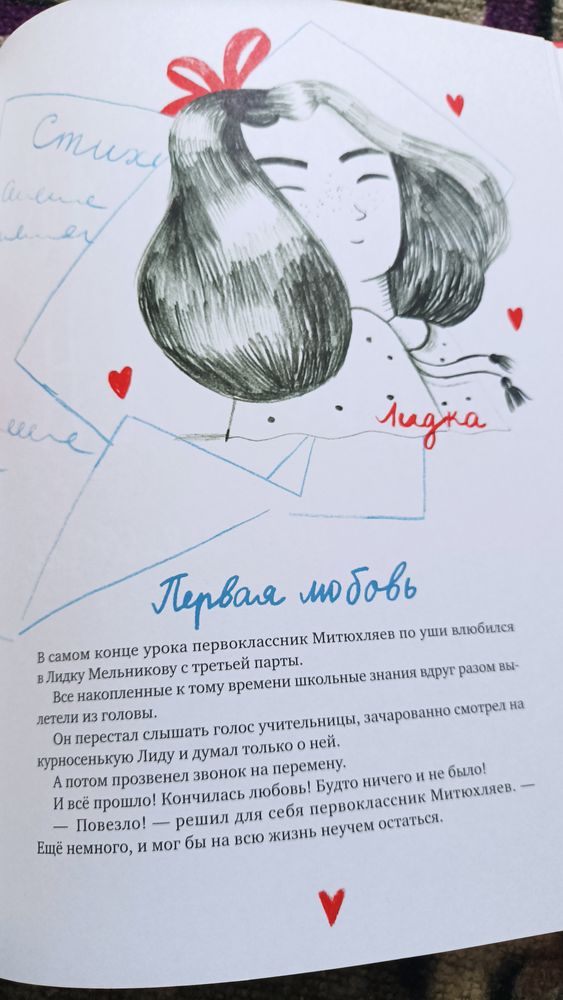 Стихи
Лидка
Первая любовь
В самом конце урока первоклассник Митюхляев по уши влюбился
в Лидку Мельникову с третьей парты.
Все накопленные к тому времени школьные знания вдруг разом вы-
летели из головы.
Он перестал слышать голос учительницы, зачарованно смотрел на
курносенькую Лиду и думал только о ней.
А потом прозвенел звонок на перемену.
И всё прошло! Кончилась любовь! Будто ничего и не было!
— Повезло! — решил для себя первоклассник Митюхляев. —
Ещё немного, и мог бы на всю жизнь неучем остаться.